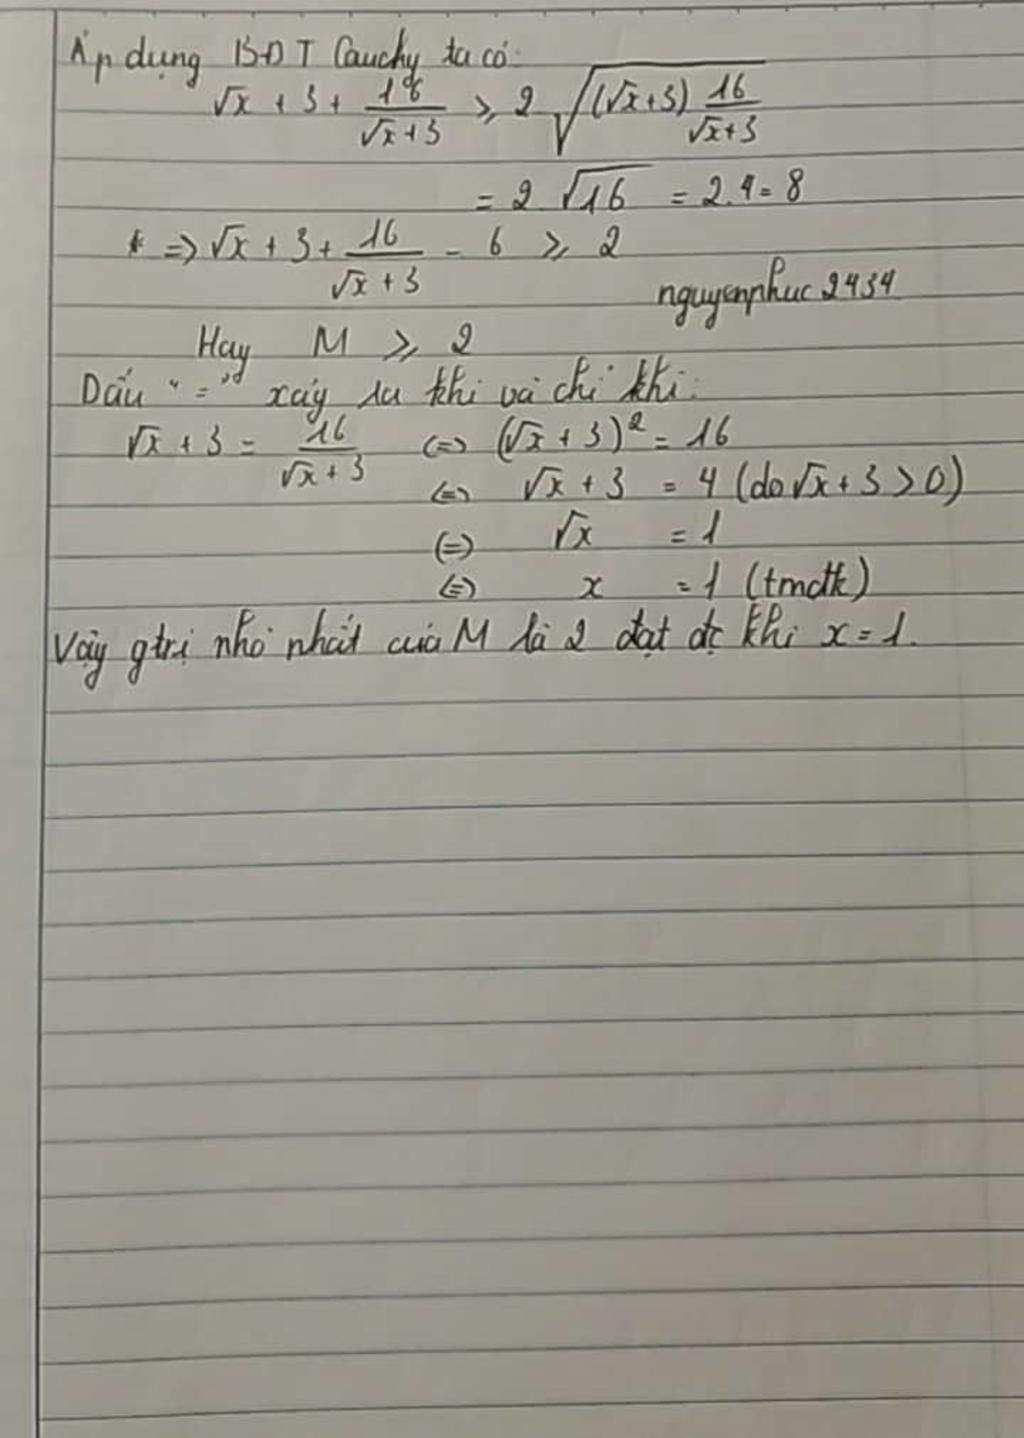 Áp dụng BĐT Cauchy ta có:
√x + 3 + 16/(√x + 3) ≥ 2 √((√x+3) 16/(√x+3))
= 2 √16 = 2.4 = 8
* => √x + 3 + 16/(√x + 3) - 6 ≥ 2
nguyenphuc2434
Hay M ≥ 2
Dấu "=" xảy ra khi và chỉ khi:
√x + 3 = 16/(√x + 3) <=> (√x + 3)² = 16
<=> √x + 3 = 4 (do √x + 3 > 0)
<=> √x = 1
<=> x = 1 (tmđk)
Vậy gtrị nhỏ nhất của M là 2 đạt đc khi x = 1.